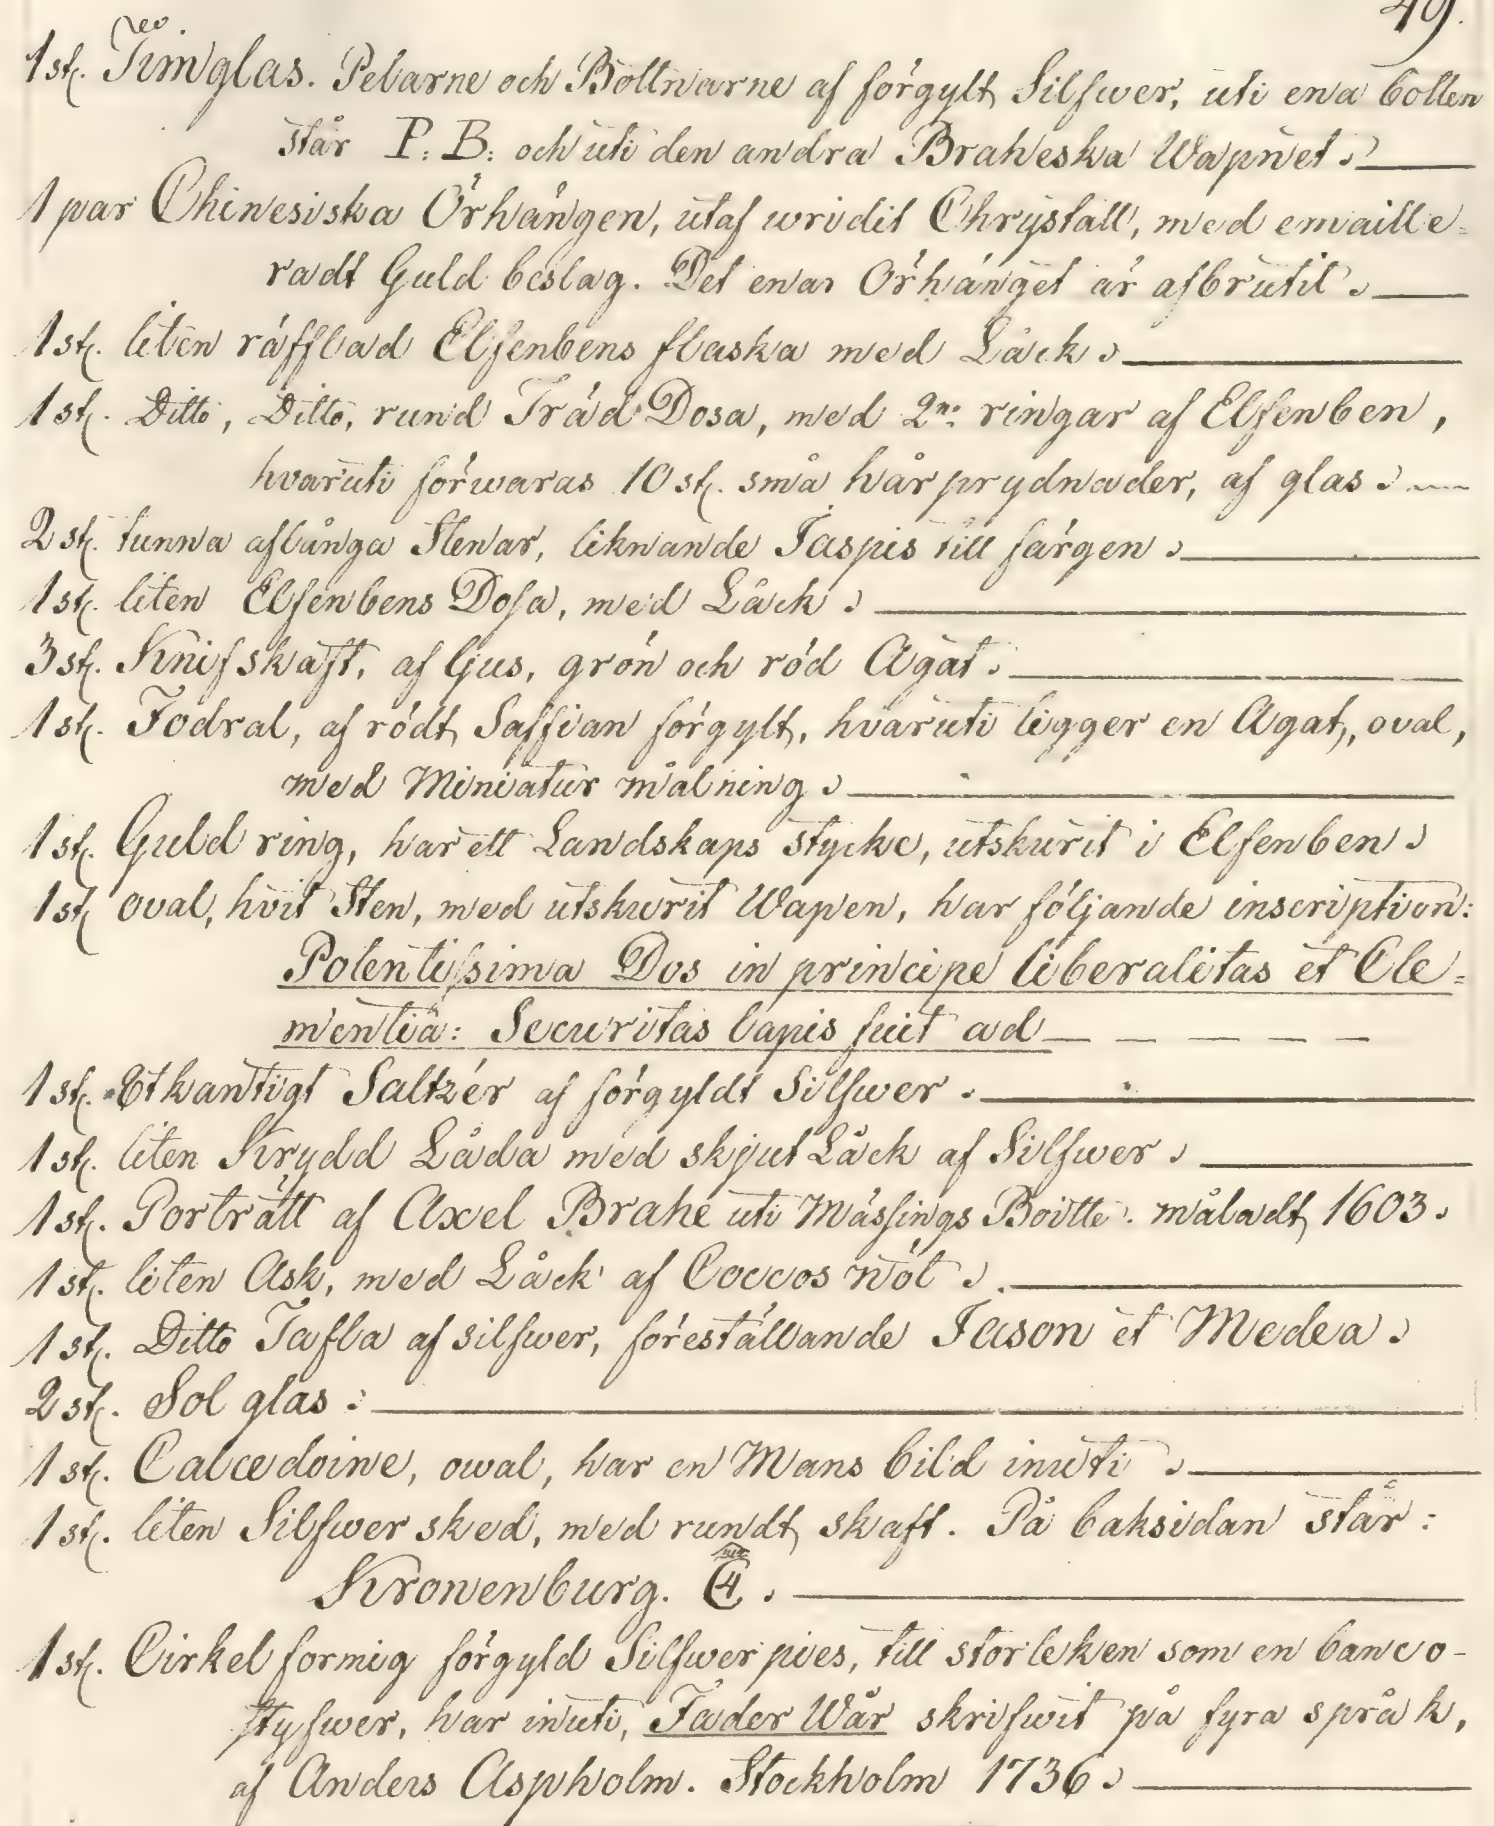 49.
1 st. Timglas. Pelarne och Bottnarne af förgylt Silfwer, uti ena bollen
står P: B: och uti den andra Braheska Wapnet.
1 par Chinesiska Örhängen, utaf wridit Chrystall, med emaille=
radt Guld beslag. Det ena Örhänget är afbrutit.
1 st. liten räfflad Elfenbens flaska med Låck.
1 st. Ditto, Ditto, rund Träd Dosa, med 2ne: ringar af Elfenben,
hvaruti förwaras 10 st. små hårprydnader, af glas.
2 st. tunna aflånga Stenar, liknande Jaspis till färgen.
1 st. liten Elfenbens Dosa, med Låck.
3 st. Knifskaft, af ljus, grön och röd Agat.
1 st. Fodral, af rödt Saffian förgylt, hvaruti ligger en Agat, oval,
med Miniatur målning.
1 st. Guld ring, har ett Landskaps stycke, utskurit i Elfenben.
1 st. oval, hvit Sten, med utskurit Wapen, har följande inscription:
Potentissima Dos in principe liberalitas et Cle=
mentia: Securitas lapis fuit ad – – – – –
1 st. Etkantigt Saltzér af förgyldt Silfwer.
1 st. liten Krydd Låda med skjut Låck af Silfwer.
1 st. Porträtt af Axel Brahe uti Mässings Boitte. måladt 1603.
1 st. liten Ask, med Låck af Coccos nöt.
1 st. Ditto Tafla af silfwer, föreställande Jason et Medea.
2 st. Sol glas:
1 st. Calcedoine, owal, har en Mans bild inuti.
1 st. liten Silfwer sked, med rundt skaft. På baksidan står:
Kronenburg. C4.
1 st. Cirkelformig förgyld Silfwer pies, till storleken som en banco-
styfwer, har inuti, Fader Wår skrifwit på fyra språk,
af Anders Aspholm. Stockholm 1736.